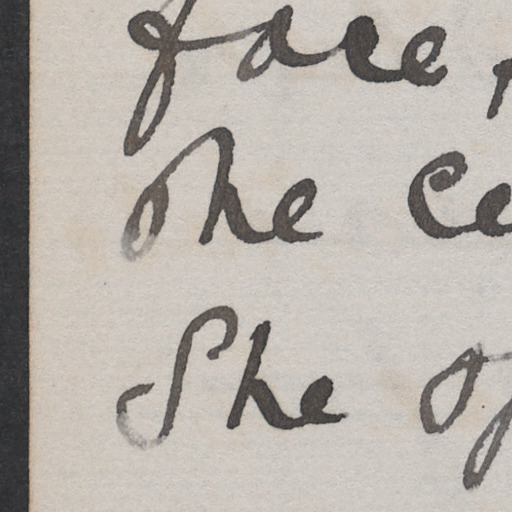 face,
The ce
She of